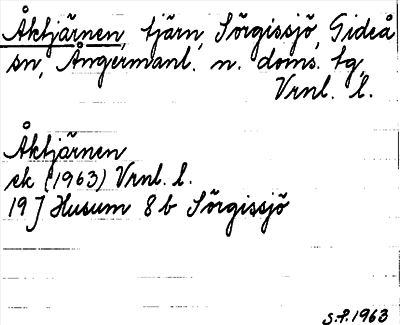 Åktjärnen, tjärn, Sörgissjö, Gideå
sn, Ångermanl. n. doms. tg,
Vrnl. l.
Åktjärnen
ek (1963) Vrnl. l.
19 J Husum 8 b Sörgissjö
S.P. 1963